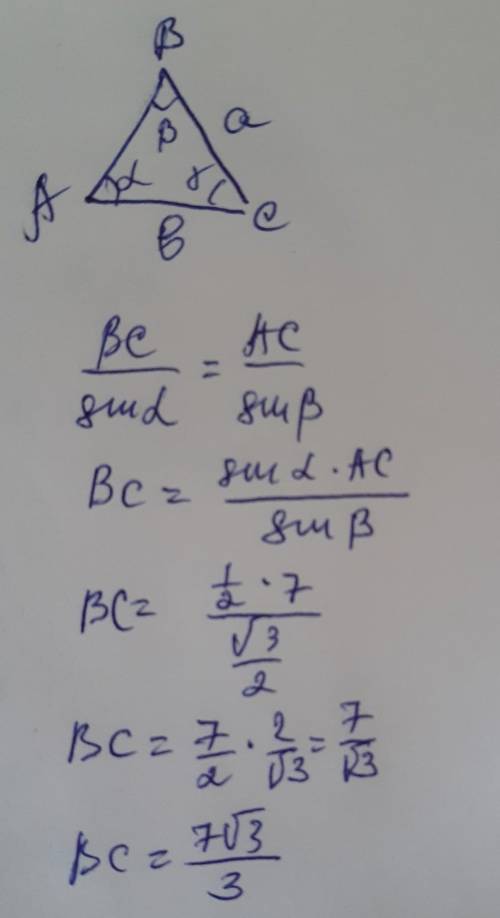 B
β a
A α γ C
в
BC/sinα = AC/sinβ
BC = sinα · AC/sinβ
BC = 1/2 · 7/√3/2
BC = 7/2 · 2/√3 = 7/√3
BC = 7√3/3